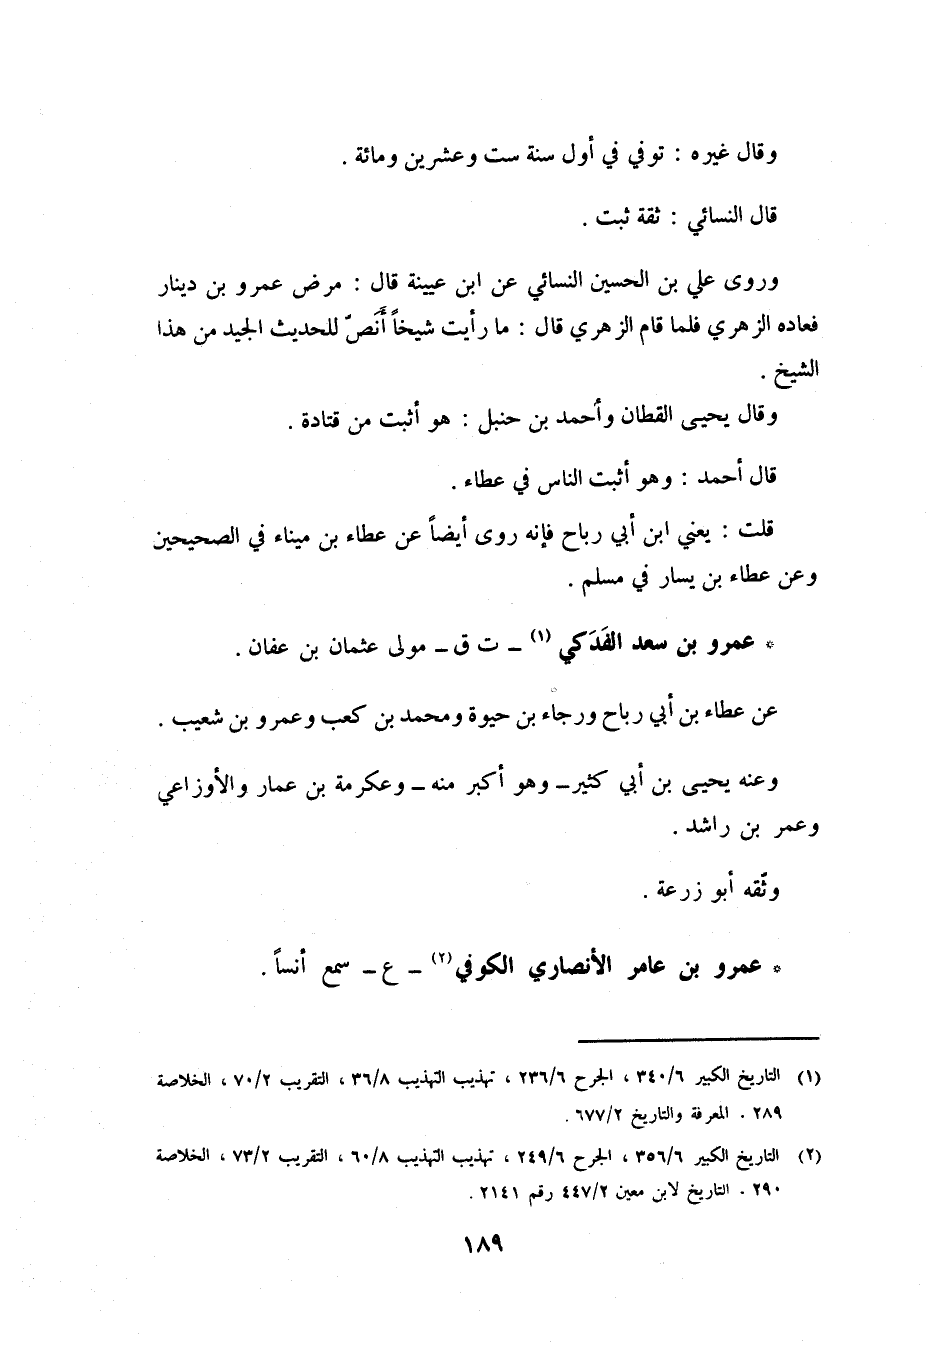 وقال غيره : توفي في أول سنة ست وعشرين ومائة .
قال النسائي : ثقة ثبت .
وروى علي بن الحسين النسائي عن ابن عيينة قال : مرض عمرو بن دينار
فعاده الزهري فلما قام الزهري قال : ما رأيت شيخاً أَنَصّ للحديث الجيد من هذا
الشيخ .
وقال يحيى القطان وأحمد بن حنبل : هو أثبت من قتادة .
قال أحمد : وهو أثبت الناس في عطاء .
قلت : يعني ابن أبي رباح فإنه روى أيضاً عن عطاء بن ميناء في الصحيحين
وعن عطاء بن يسار في مسلم .
* عمرو بن سعد الفَدَكي (١) ــ ت ق ــ مولى عثمان بن عفان .
عن عطاء بن أبي رباح ورجاء بن حيوة ومحمد بن كعب وعمرو بن شعيب .
وعنه يحيى بن أبي كثير ــ وهو أكبر منه ــ وعكرمة بن عمار والأوزاعي
وعمر بن راشد .
وثّقه أبو زرعة .
* عمرو بن عامر الأنصاري الكوفي (٢) ــ ع ــ سمع أنساً .
(١) التاريخ الكبير ٣٤٠/٦ ، الجرح ٢٣٦/٦ ، تهذيب التهذيب ٣٦/٨ ، التقريب ٧٠/٢ ، الخلاصة
٢٨٩ . المعرفة والتاريخ ٦٧٧/٢ .
(٢) التاريخ الكبير ٣٥٦/٦ ، الجرح ٢٤٩/٦ ، تهذيب التهذيب ٦٠/٨ ، التقريب ٧٣/٢ ، الخلاصة
٢٩٠ . التاريخ لابن معين ٤٤٧/٢ رقم ٢١٤١ .
١٨٩